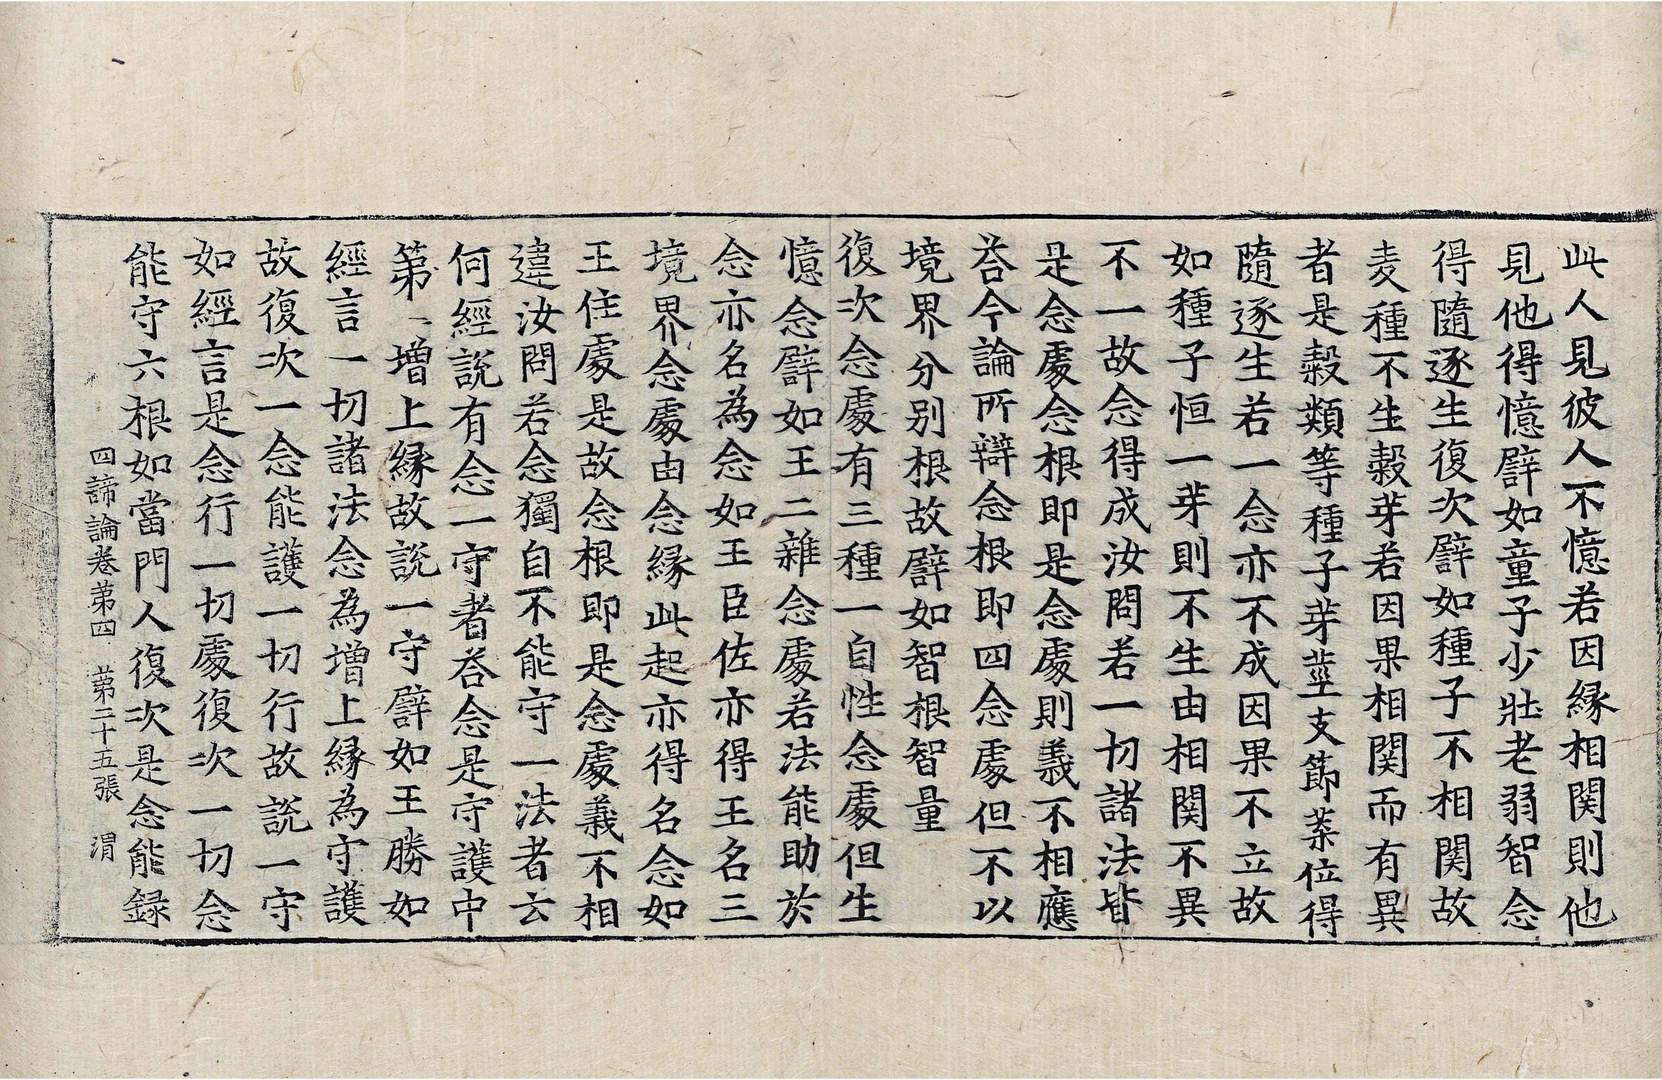 此人見彼人不憶若因縁相関則他
見他得憶譬如童子少壯老弱智念
得隨逐生復次譬如種子不相関故
麦種不生糓芽若因果相関而有異
者是糓類等種子芽莖支節葉位得
隨逐生若一念亦不成因果不立故
如種子恒一芽則不生由相関不異
不一故念得成汝問若一切諸法皆
是念處念根即是念處則義不相應
荅今論所辯念根即四念處但不以
境界分別根故譬如智根智量
復次念處有三種一自性念處但生
憶念譬如王二雜念處若法能助於
念亦名為念如王臣佐亦得王名三
境界念處由念縁此起亦得名念如
王住處是故念根即是念處義不相
違汝問若念獨自不能守一法者云
何經說有念一守者荅念是守護中
第一增上縁故說一守譬如王勝如
經言一切諸法念為增上縁為守護
故復次一念能護一切行故說一守
如經言是念行一切處復次一切念
能守六根如當門人復次是念能録
四諦論卷第四 第二十五張 渭